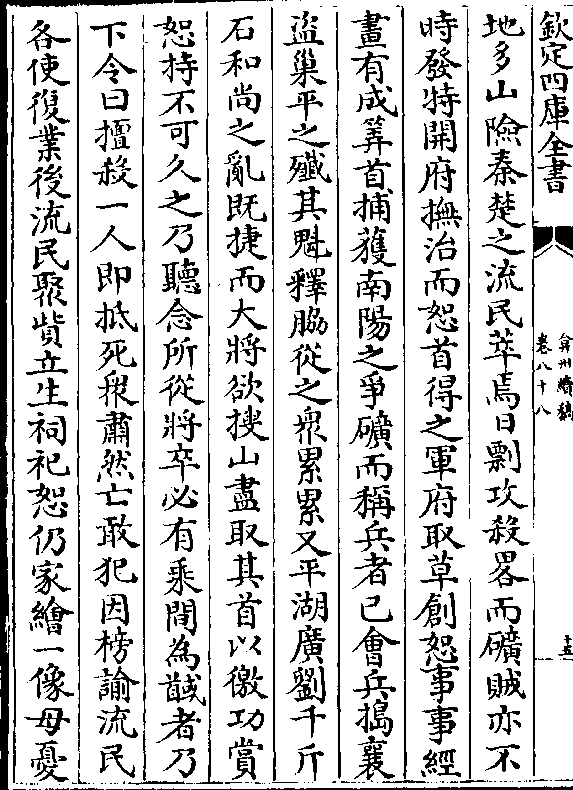 欽定四庫全書
弇州續稿
卷八十八
十五
地多山險秦楚之流民萃焉日剽攻殺畧而礦賊亦不
時發特開府撫治而恕首得之軍府取草創恕事事經
畫有成筭首捕獲南陽之爭礦而稱兵者已會兵搗襄
盜巢平之殲其魁釋脇從之衆累累又平湖廣劉千斤
石和尚之亂既捷而大將欲搜山盡取其首以徼功賞
恕持不可久之乃聽念所從將卒必有乘間為馘者乃
下令曰擅殺一人即抵死衆肅然亡敢犯因榜諭流民
各使復業後流民聚貲立生祠祀恕仍家繪一像母憂